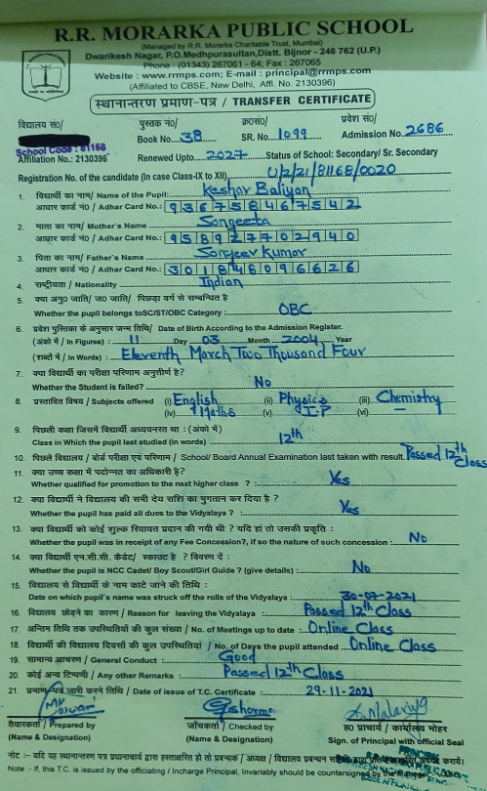 R.R. MORARKA PUBLIC SCHOOL
(Managed by R.R. Morarka Charitable Trust, Mumbai)
Dwarikesh Nagar, P.O.Medhpurasultan,Distt. Bijnor - 246 762 (U.P.)
Phone : (01343) 267061 - 64; Fax : 267065
Website : www.rrmps.com; E-mail : principal@rrmps.com
(Affiliated to CBSE, New Delhi, Affl. No. 2130396)
स्थानान्तरण प्रमाण-पत्र / TRANSFER CERTIFICATE
विद्यालय सं०/ पुस्तक नं०/ क्र०सं०/ प्रवेश सं०/
School Code : 81168 Book No. 38 SR. No. 1099 Admission No. 2686
Affiliation No.: 2130396 Renewed Upto 2027 Status of School: Secondary/ Sr. Secondary
Registration No. of the candidate (In case Class-IX to XII) U/2/21/81168/0020
1. विद्यार्थी का नाम/ Name of the Pupil: Keshav Baliyan
आधार कार्ड नं०/ Adhar Card No.: 936758467542
2. माता का नाम/ Mother's Name Sangeeta
आधार कार्ड नं०/ Adhar Card No.: 958927702940
3. पिता का नाम/ Father's Name Sanjeev Kumar
आधार कार्ड नं०/ Adhar Card No.: 301848096626
4. राष्ट्रीयता / Nationality Indian
5. क्या अनु० जाति/ ज० जाति/ पिछड़ा वर्ग से सम्बन्धित है
Whether the pupil belongs toSC/ST/OBC Category : OBC
6. प्रवेश पुस्तिका के अनुसार जन्म तिथि/ Date of Birth According to the Admission Register.
(अंको में / In Figures) : 11 Day 03 Month 2004 Year
(शब्दों में / In Words) : Eleventh March Two Thousand Four
7. क्या विद्यार्थी का परीक्षा परिणाम अनुत्तीर्ण है?
Whether the Student is failed? No
8. प्रस्तावित विषय / Subjects offered (i) English (ii) Physics (iii) Chemistry
(iv) Maths (v) I.P (vi) —
9. पिछली कक्षा जिसमें विद्यार्थी अध्ययनरत था : (अंको में)
Class in Which the pupil last studied (in words) 12th
10. पिछले विद्यालय / बोर्ड परीक्षा एवं परिणाम / School/ Board Annual Examination last taken with result. Passed 12th Class
11. क्या उच्च कक्षा में पदोन्नत का अधिकारी है?
Whether qualified for promotion to the next higher class ? : Yes
12. क्या विद्यार्थी ने विद्यालय की सभी देय राशि का भुगतान कर दिया है ?
Whether the pupil has paid all dues to the Vidyalaya ? : Yes
13. क्या विद्यार्थी को कोई शुल्क रियायत प्रदान की गयी थी ? यदि हां तो उसकी प्रकृति :
Whether the pupil was in receipt of any Fee Concession?, if so the nature of such concession : No
14. क्या विद्यार्थी एन.सी.सी. कैडेट/ स्काउट है ? विवरण दें :
Whether the pupil is NCC Cadet/ Boy Scout/Girl Guide ? (give details) : No
15. विद्यालय से विद्यार्थी के नाम काटे जाने की तिथि :
Date on which pupil's name was struck off the rolls of the Vidyalaya : 30-07-2021
16. विद्यालय छोड़ने का कारण / Reason for leaving the Vidyalaya Passed 12th Class
17. अन्तिम तिथि तक उपस्थितियों की कुल संख्या / No. of Meetings up to date : Online Class
18. विद्यार्थी की विद्यालय दिवसों की कुल उपस्थितियां / No. of Days the pupil attended Online Class
19. सामान्य आचरण / General Conduct : Good
20. कोई अन्य टिप्पणी / Any other Remarks : Passed 12th Class
21. प्रमाण-पत्र जारी करने तिथि / Date of issue of T.C. Certificate 29-11-2021
तैयारकर्ता / Prepared by जाँचकर्ता / Checked by ह० प्राचार्य / कार्यालय मोहर
(Name & Designation) (Name & Designation) Sign. of Principal with official Seal
नोट :- यदि यह स्थानान्तरण पत्र प्रधानाचार्य द्वारा हस्ताक्षरित हो तो प्रबन्धक / अध्यक्ष / विद्यालय प्रबन्धन करायें।
Note :- If, this T.C. is issued by the officiating / Incharge Principal, Invariably should be countersigned by the